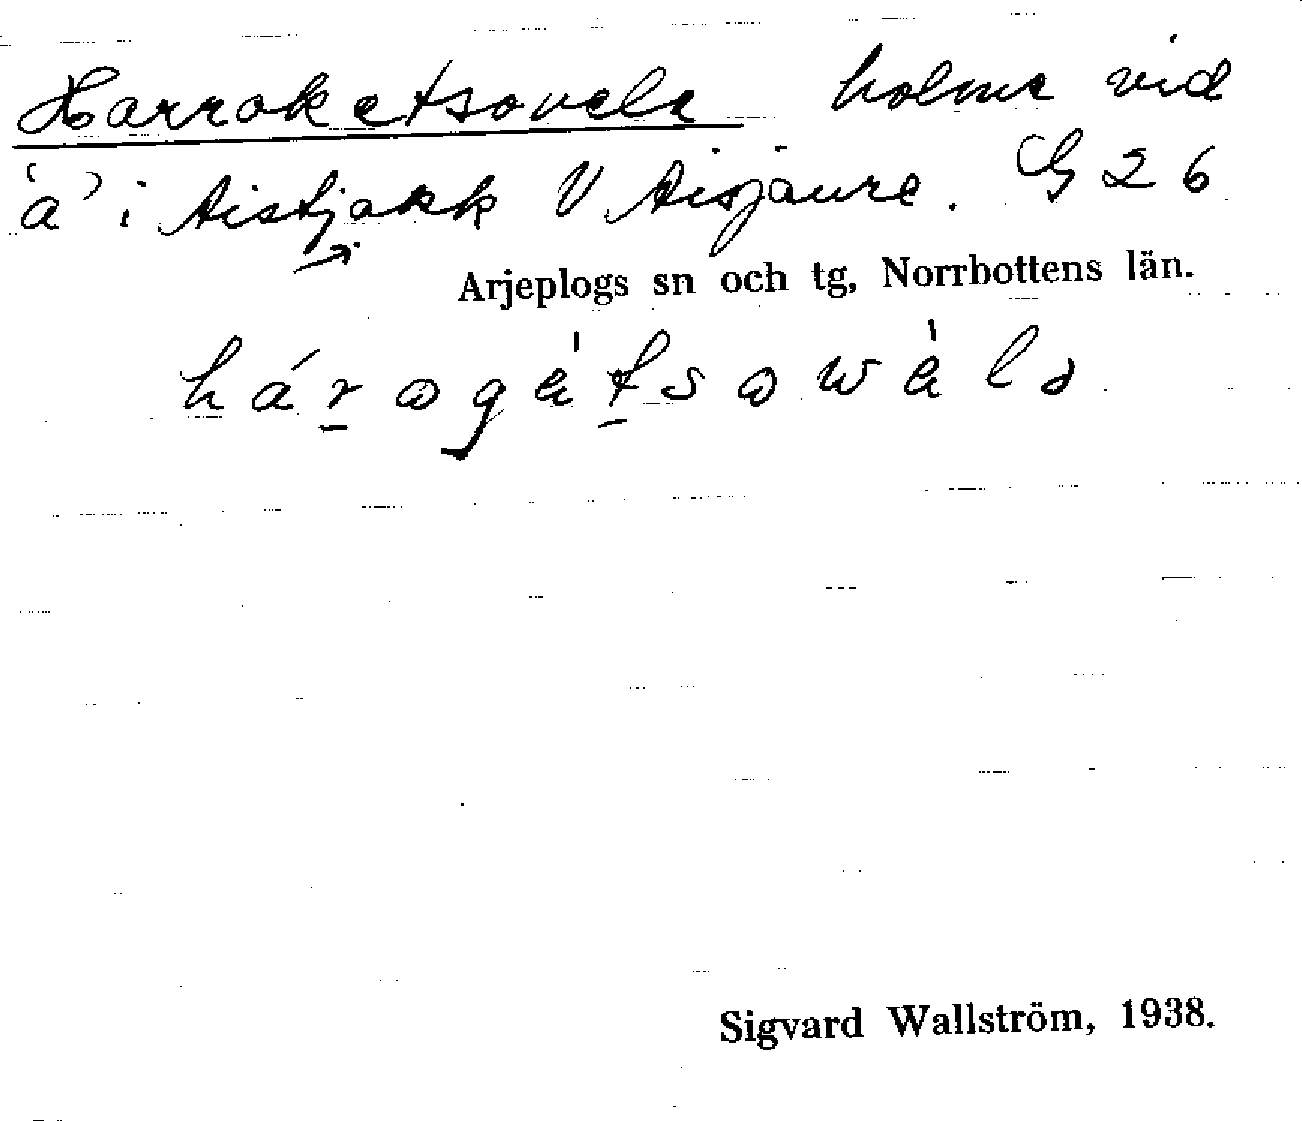 Harroketsovele holme vid
'å' i Aistjakk V Aisjaure. G 26
Arjeplogs sn och tg, Norrbottens län.
Sigvard Wallström, 1938.